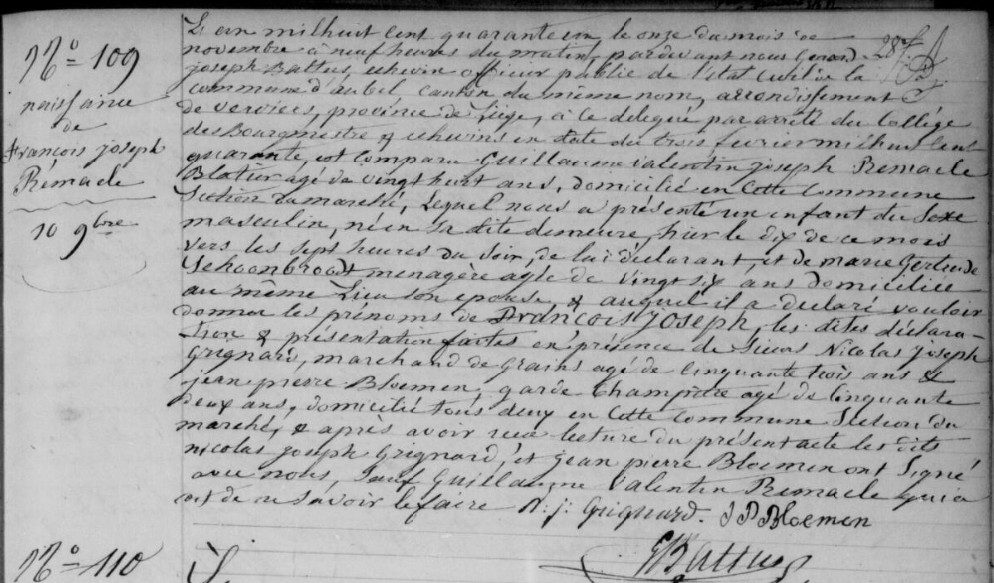 N° 109
naissance
de
francois joseph
Remacle
10 9bre
L'an mil huit cent quarante un, le onze du mois de
novembre à neuf heures du matin, pardevant nous Gerard
joseph Battus, echevin officier public de l'Etat Civil de la
commune d'aubel canton du même nom, arrondissement
de verviers, province de Liège, à ce délégué par arrêté du Collège
des Bourgmestre & echevins en date du trois fevrier mil huit cent
quarante, est comparu Guillaume Valentin joseph Remacle
agé de vingt huit ans, domicilié en cette commune
Section du marché, lequel nous a présenté un enfant du Sexe
masculin, né en sa dite demeure, hier le dix de ce mois
vers les sept heures du soir, de lui déclarant, et de marie Gertrude
Schoonbroodt menagère agée de vingt six ans domiciliée
au même Lieu son epouse, & auquel il a declaré vouloir
donner les prénoms de François joseph, les dites déclara-
tion & présentation faites en présence de Sieurs Nicolas joseph
Grignard, marchand de Grains agé de Cinquante trois ans &
jean pierre Bloemen, garde Champêtre agé de Cinquante
deux ans, domicilié tous deux en cette commune Section du
marché, & après avoir reçu lecture du présent acte les dits
nicolas joseph Grignard et jean pierre Bloemen ont Signé
avec nous, Sauf Guillaume Valentin Remacle qui a
dit de ne Savoir le faire N. j. Grignard. J P Bloemen
GBattus
N° 110